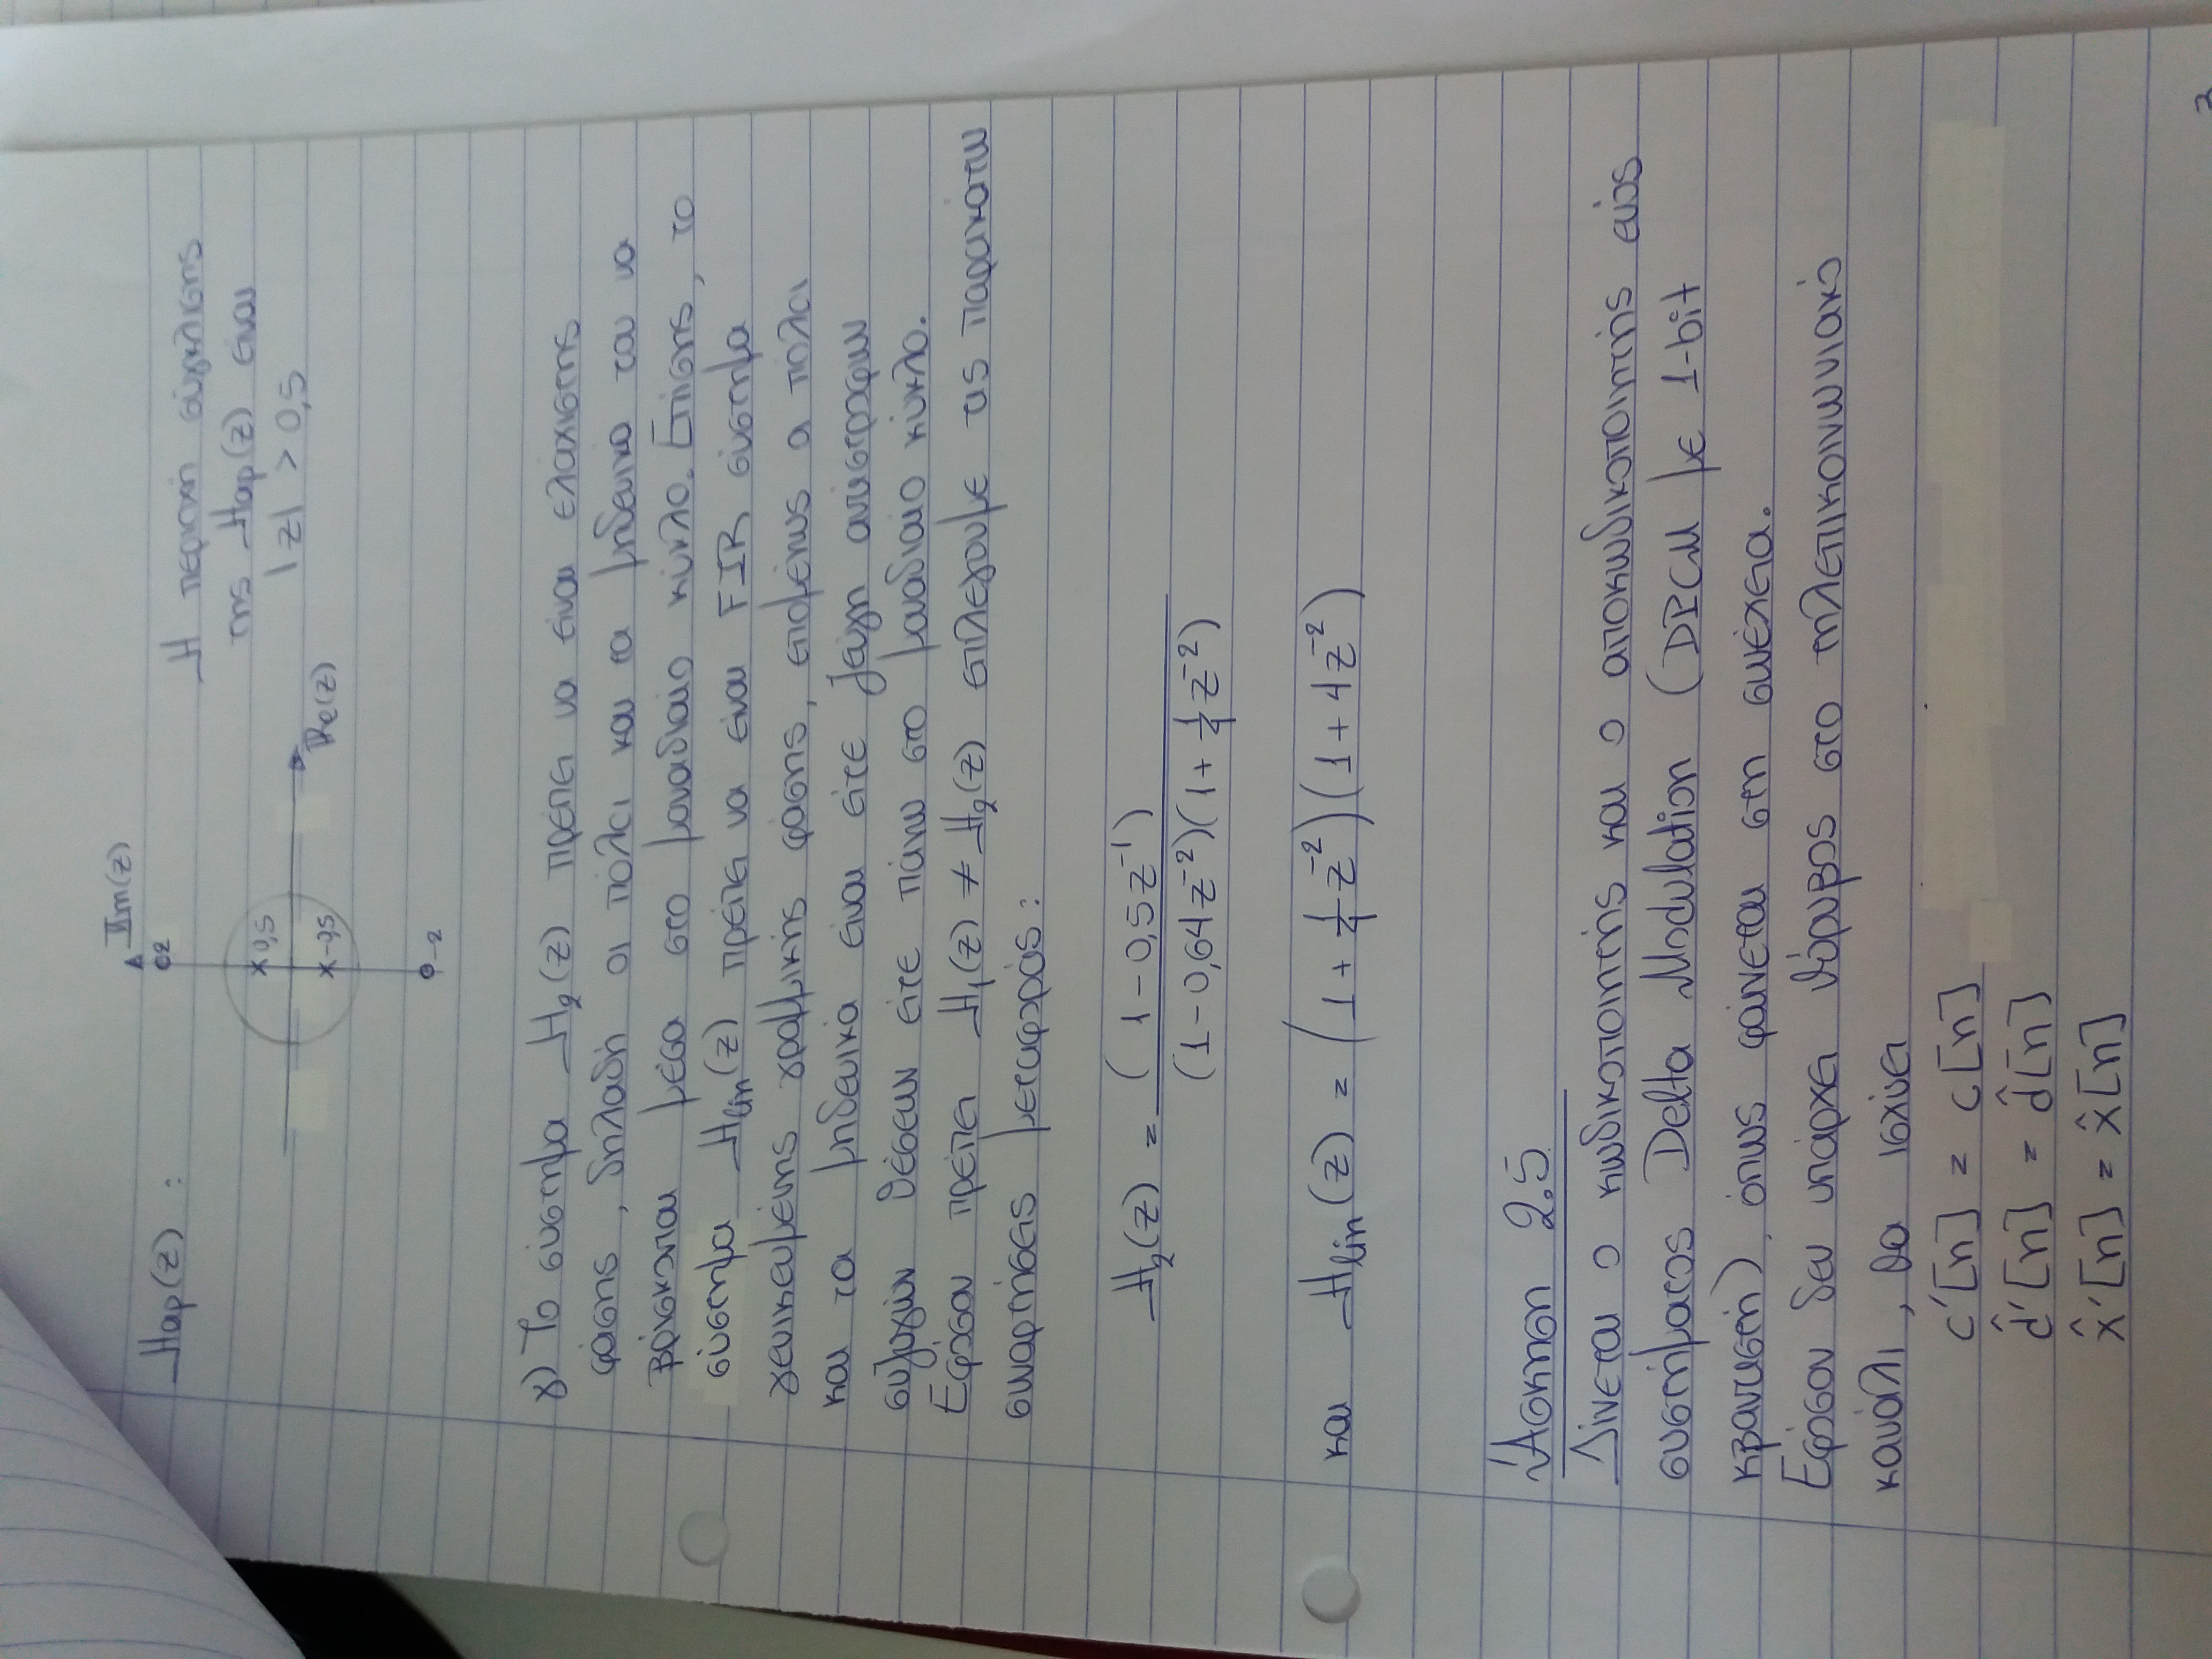 Hap(z) :
Im(z)
2
0,5
-0,5
Re(z)
-2
Η περιοχή σύγκλισης
της Hap(z) είναι
|z| > 0,5
γ) Το σύστημα H₂(z) πρέπει να είναι ελάχιστης
φάσης, δηλαδή οι πόλοι και τα μηδενικά του να
βρίσκονται μέσα στο μοναδιαίο κύκλο. Επίσης, το
σύστημα Hlin(z) πρέπει να είναι FIR σύστημα
γενικευμένης γραμμικής φάσης, επομένως οι πόλοι
και τα μηδενικά είναι είτε ζεύγη αντίστροφων
συζυγών θέσεων είτε πάνω στο μοναδιαίο κύκλο.
Εφόσον πρέπει H₁(z) ≠ H₂(z) επιλέγουμε τις παρακάτω
συναρτήσεις μεταφοράς:
H₂(z) = (1 - 0,5z⁻¹) / (1 - 0,64z⁻²)(1 + 1/4 z⁻²)
και Hlin(z) = (1 + 1/4 z⁻²)(1 + 4z⁻²)
Άσκηση 2.5
Δίνεται ο κωδικοποιητής και ο αποκωδικοποιητής ενός
συστήματος Delta Modulation (DPCM με 1-bit
κβαντιστή), όπως φαίνεται στη συνέχεια.
Εφόσον δεν υπάρχει θόρυβος στο τηλεπικοινωνιακό
κανάλι, θα ισχύει
c'[n] = c[n]
d̂'[n] = d̂[n]
x̂'[n] = x̂[n]